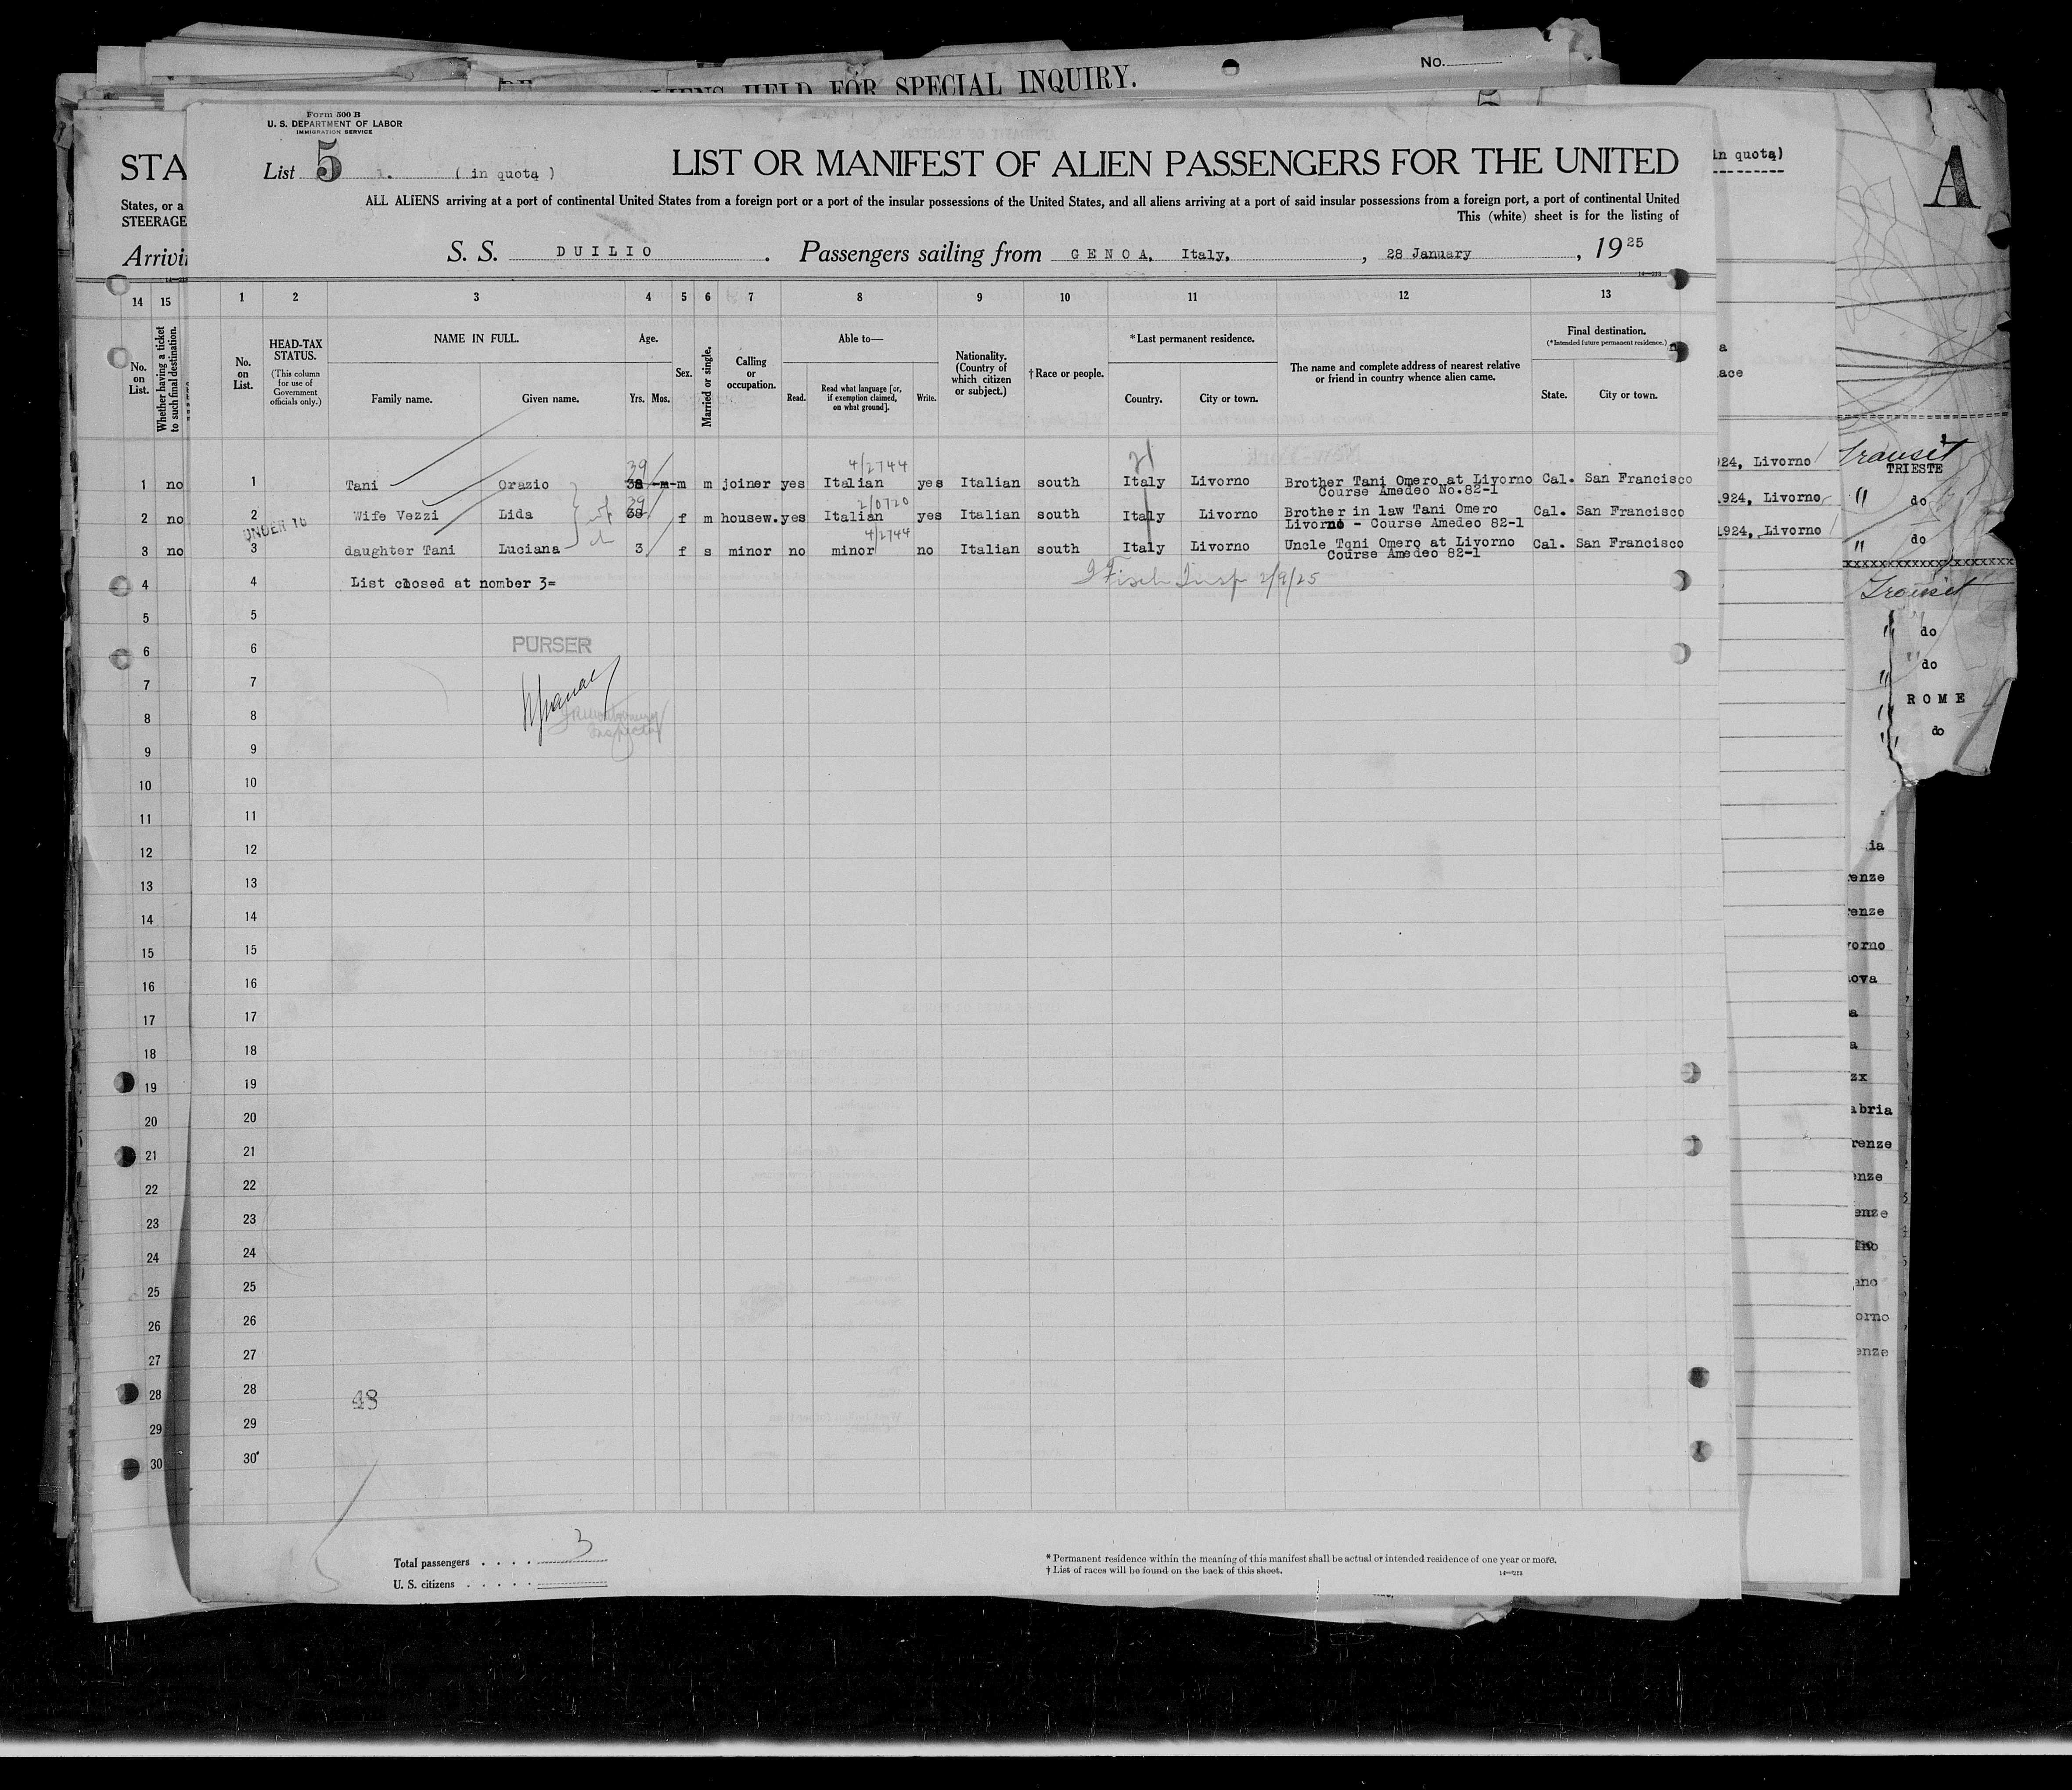 ALIENS HELD FOR SPECIAL INQUIRY.
No.
Form 500 B
U. S. DEPARTMENT OF LABOR
IMMIGRATION SERVICE
STA
List 5 ( in quota )
LIST OR MANIFEST OF ALIEN PASSENGERS FOR THE UNITED
in quota)
A
States, or a
STEERAGE
ALL ALIENS arriving at a port of continental United States from a foreign port or a port of the insular possessions of the United States, and all aliens arriving at a port of said insular possessions from a foreign port, a port of continental United
This (white) sheet is for the listing of
Arrivi
S. S. DUILIO. Passengers sailing from GENOA, Italy, , 28 January , 1925
14—213
14 15 1 2 3 4 5 6 7 8 9 10 11 12 13
No. on List.
Whether having a ticket to such final destination.
No. on List.
HEAD-TAX STATUS.
(This column for use of Government officials only.)
NAME IN FULL.
Family name.
Given name.
Age.
Yrs.
Mos.
Sex.
Married or single.
Calling or occupation.
Able to—
Read.
Read what language [or, if exemption claimed, on what ground].
Write.
Nationality. (Country of which citizen or subject.)
†Race or people.
*Last permanent residence.
Country.
City or town.
The name and complete address of nearest relative or friend in country whence alien came.
Final destination.
(*Intended future permanent residence.)
State.
City or town.
39 4/2744 21
1 no 1 Tani Orazio 38 m m joiner yes Italian yes Italian south Italy Livorno Brother Tani Omero at Livorno Cal. San Francisco
Course Amedeo No.82-1
39 2/0720
2 no 2 Wife Vezzi Lida 38 f m housew. yes Italian yes Italian south Italy Livorno Brother in law Tani Omero Cal. San Francisco
Livorno - Course Amedeo 82-1
UNDER 16
4/2744
3 no 3 daughter Tani Luciana 3 f s minor no minor no Italian south Italy Livorno Uncle Tani Omero at Livorno Cal. San Francisco
Course Amedeo 82-1
4 4 List closed at nomber 3=
Insp 2/9/25
5 5
6 6 PURSER
7 7
8 8
Inspector
9 9
10 10
11 11
12 12
13 13
14 14
15 15
16 16
17 17
18 18
19 19
20 20
21 21
22 22
23 23
24 24
25 25
26 26
27 27
28 28
48
29 29
30 30
Total passengers . . . . 3
U. S. citizens . . . . .
* Permanent residence within the meaning of this manifest shall be actual or intended residence of one year or more.
† List of races will be found on the back of this sheet.
14—213
924, Livorno
1924, Livorno
1924, Livorno
Transit
TRIESTE
" do
" do
xxxxxxxxxxxxxxxxxxxx
Transit
" do
" do
ROME
do